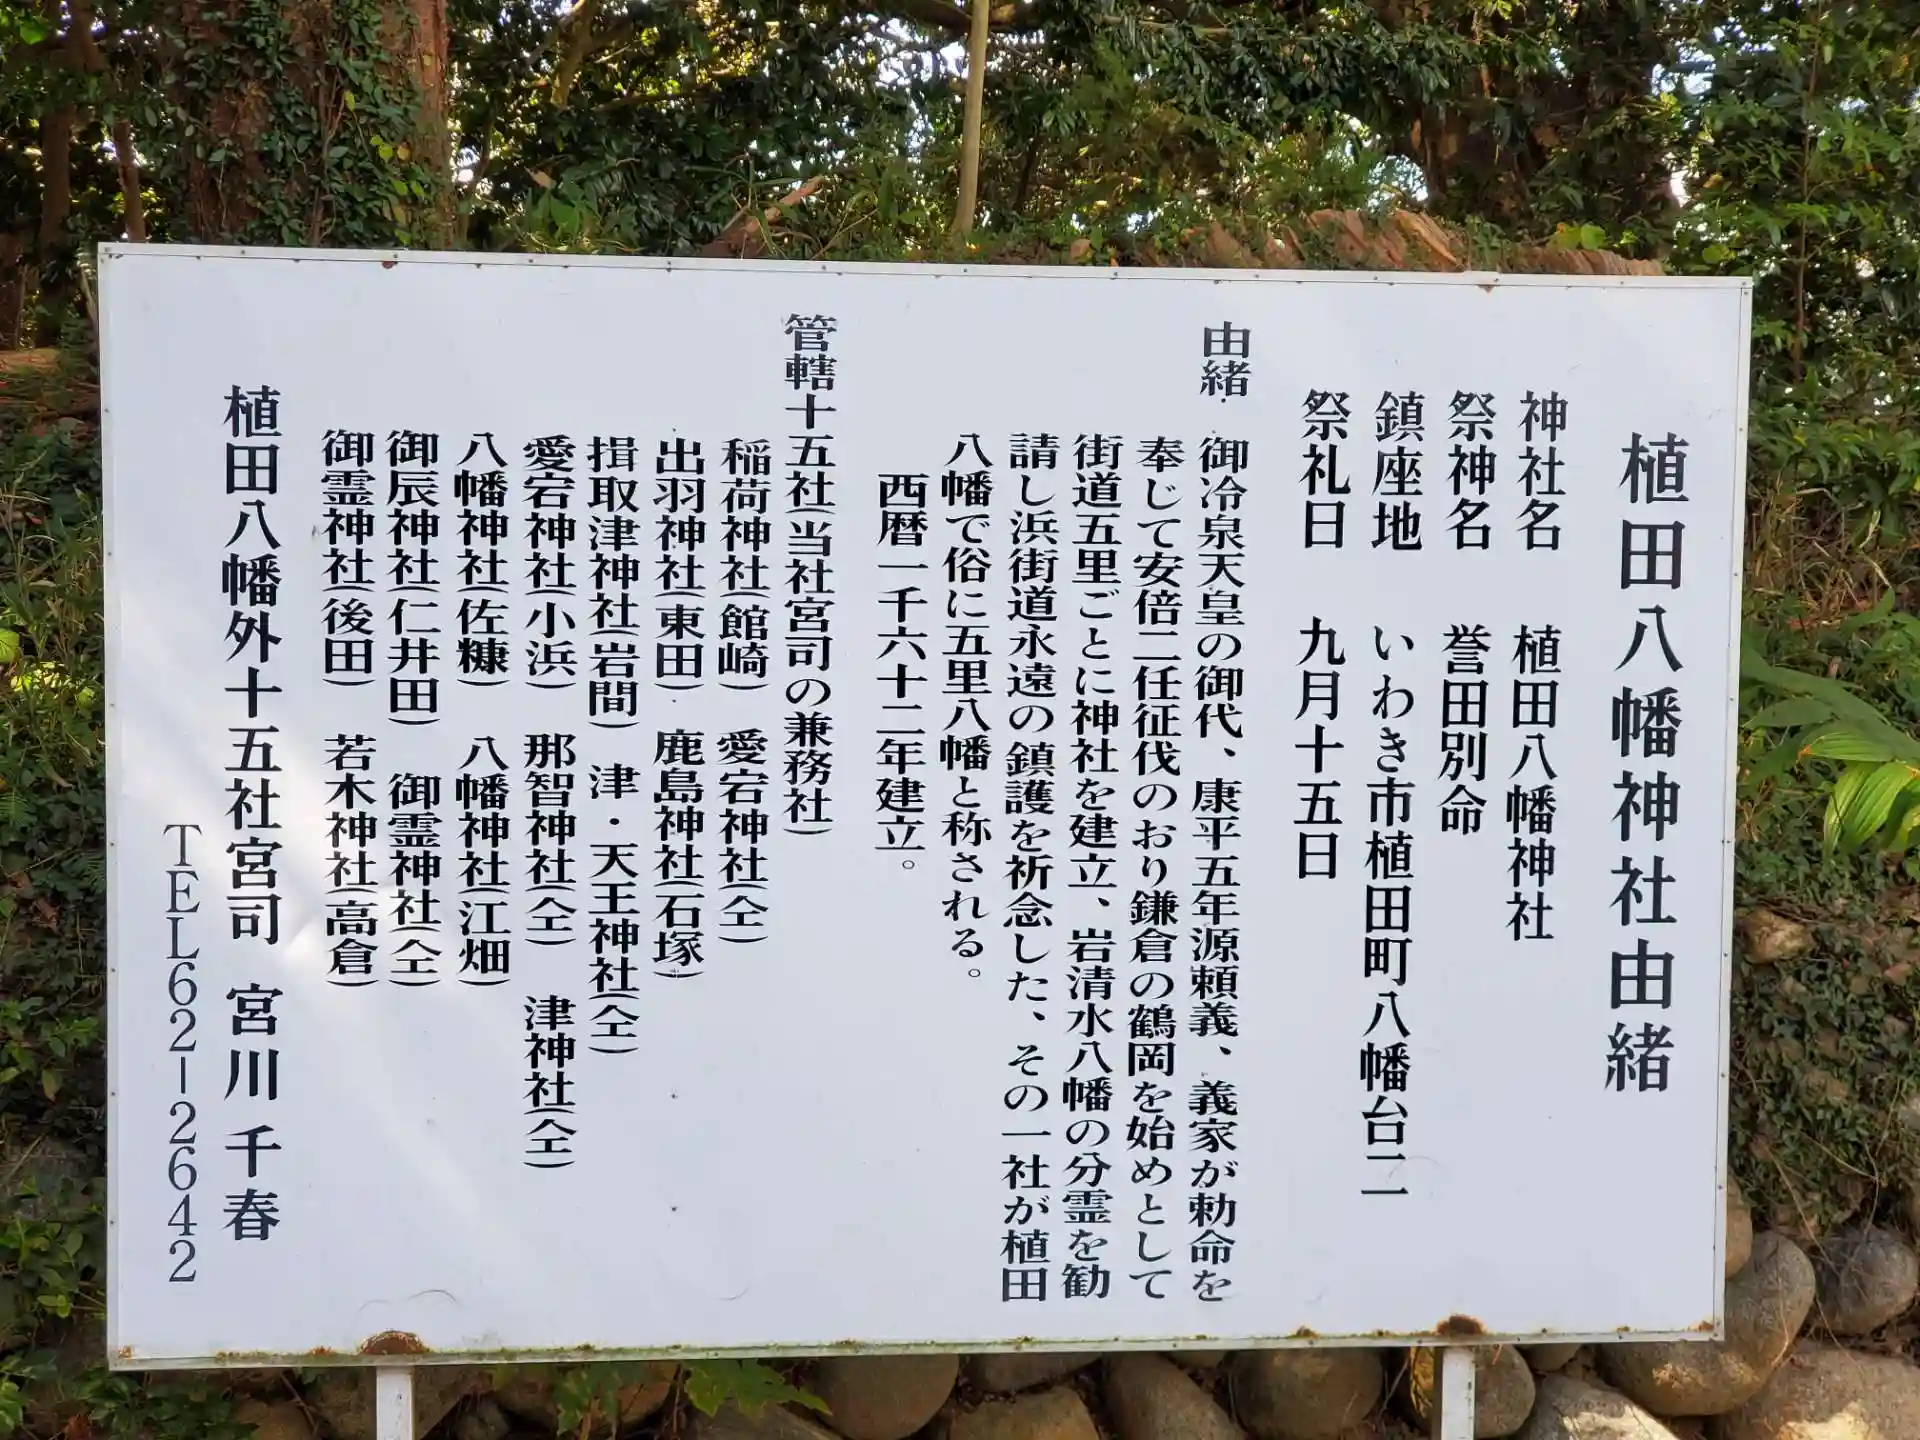 植田八幡神社由緒
神社名　植田八幡神社
祭神名　誉田別命
鎮座地　いわき市植田町八幡台二
祭礼日　九月十五日
由緒　御冷泉天皇の御代、康平五年源頼義、義家が勅命を
奉じて安倍二任征伐のおり鎌倉の鶴岡を始めとして
街道五里ごとに神社を建立、岩清水八幡の分霊を勧
請し浜街道永遠の鎮護を祈念した、その一社が植田
八幡で俗に五里八幡と称される。
西暦一千六十二年建立。
管轄十五社(当社宮司の兼務社)
稲荷神社(館崎)　愛宕神社(仝)
出羽神社(東田)　鹿島神社(石塚)
揖取津神社(岩間)　津・天王神社(仝)
愛宕神社(小浜)　那智神社(仝)　津神社(仝)
八幡神社(佐糠)　八幡神社(江畑)
御辰神社(仁井田)　御霊神社(仝)
御霊神社(後田)　若木神社(高倉)
植田八幡外十五社宮司　宮川 千春
TEL62-2642